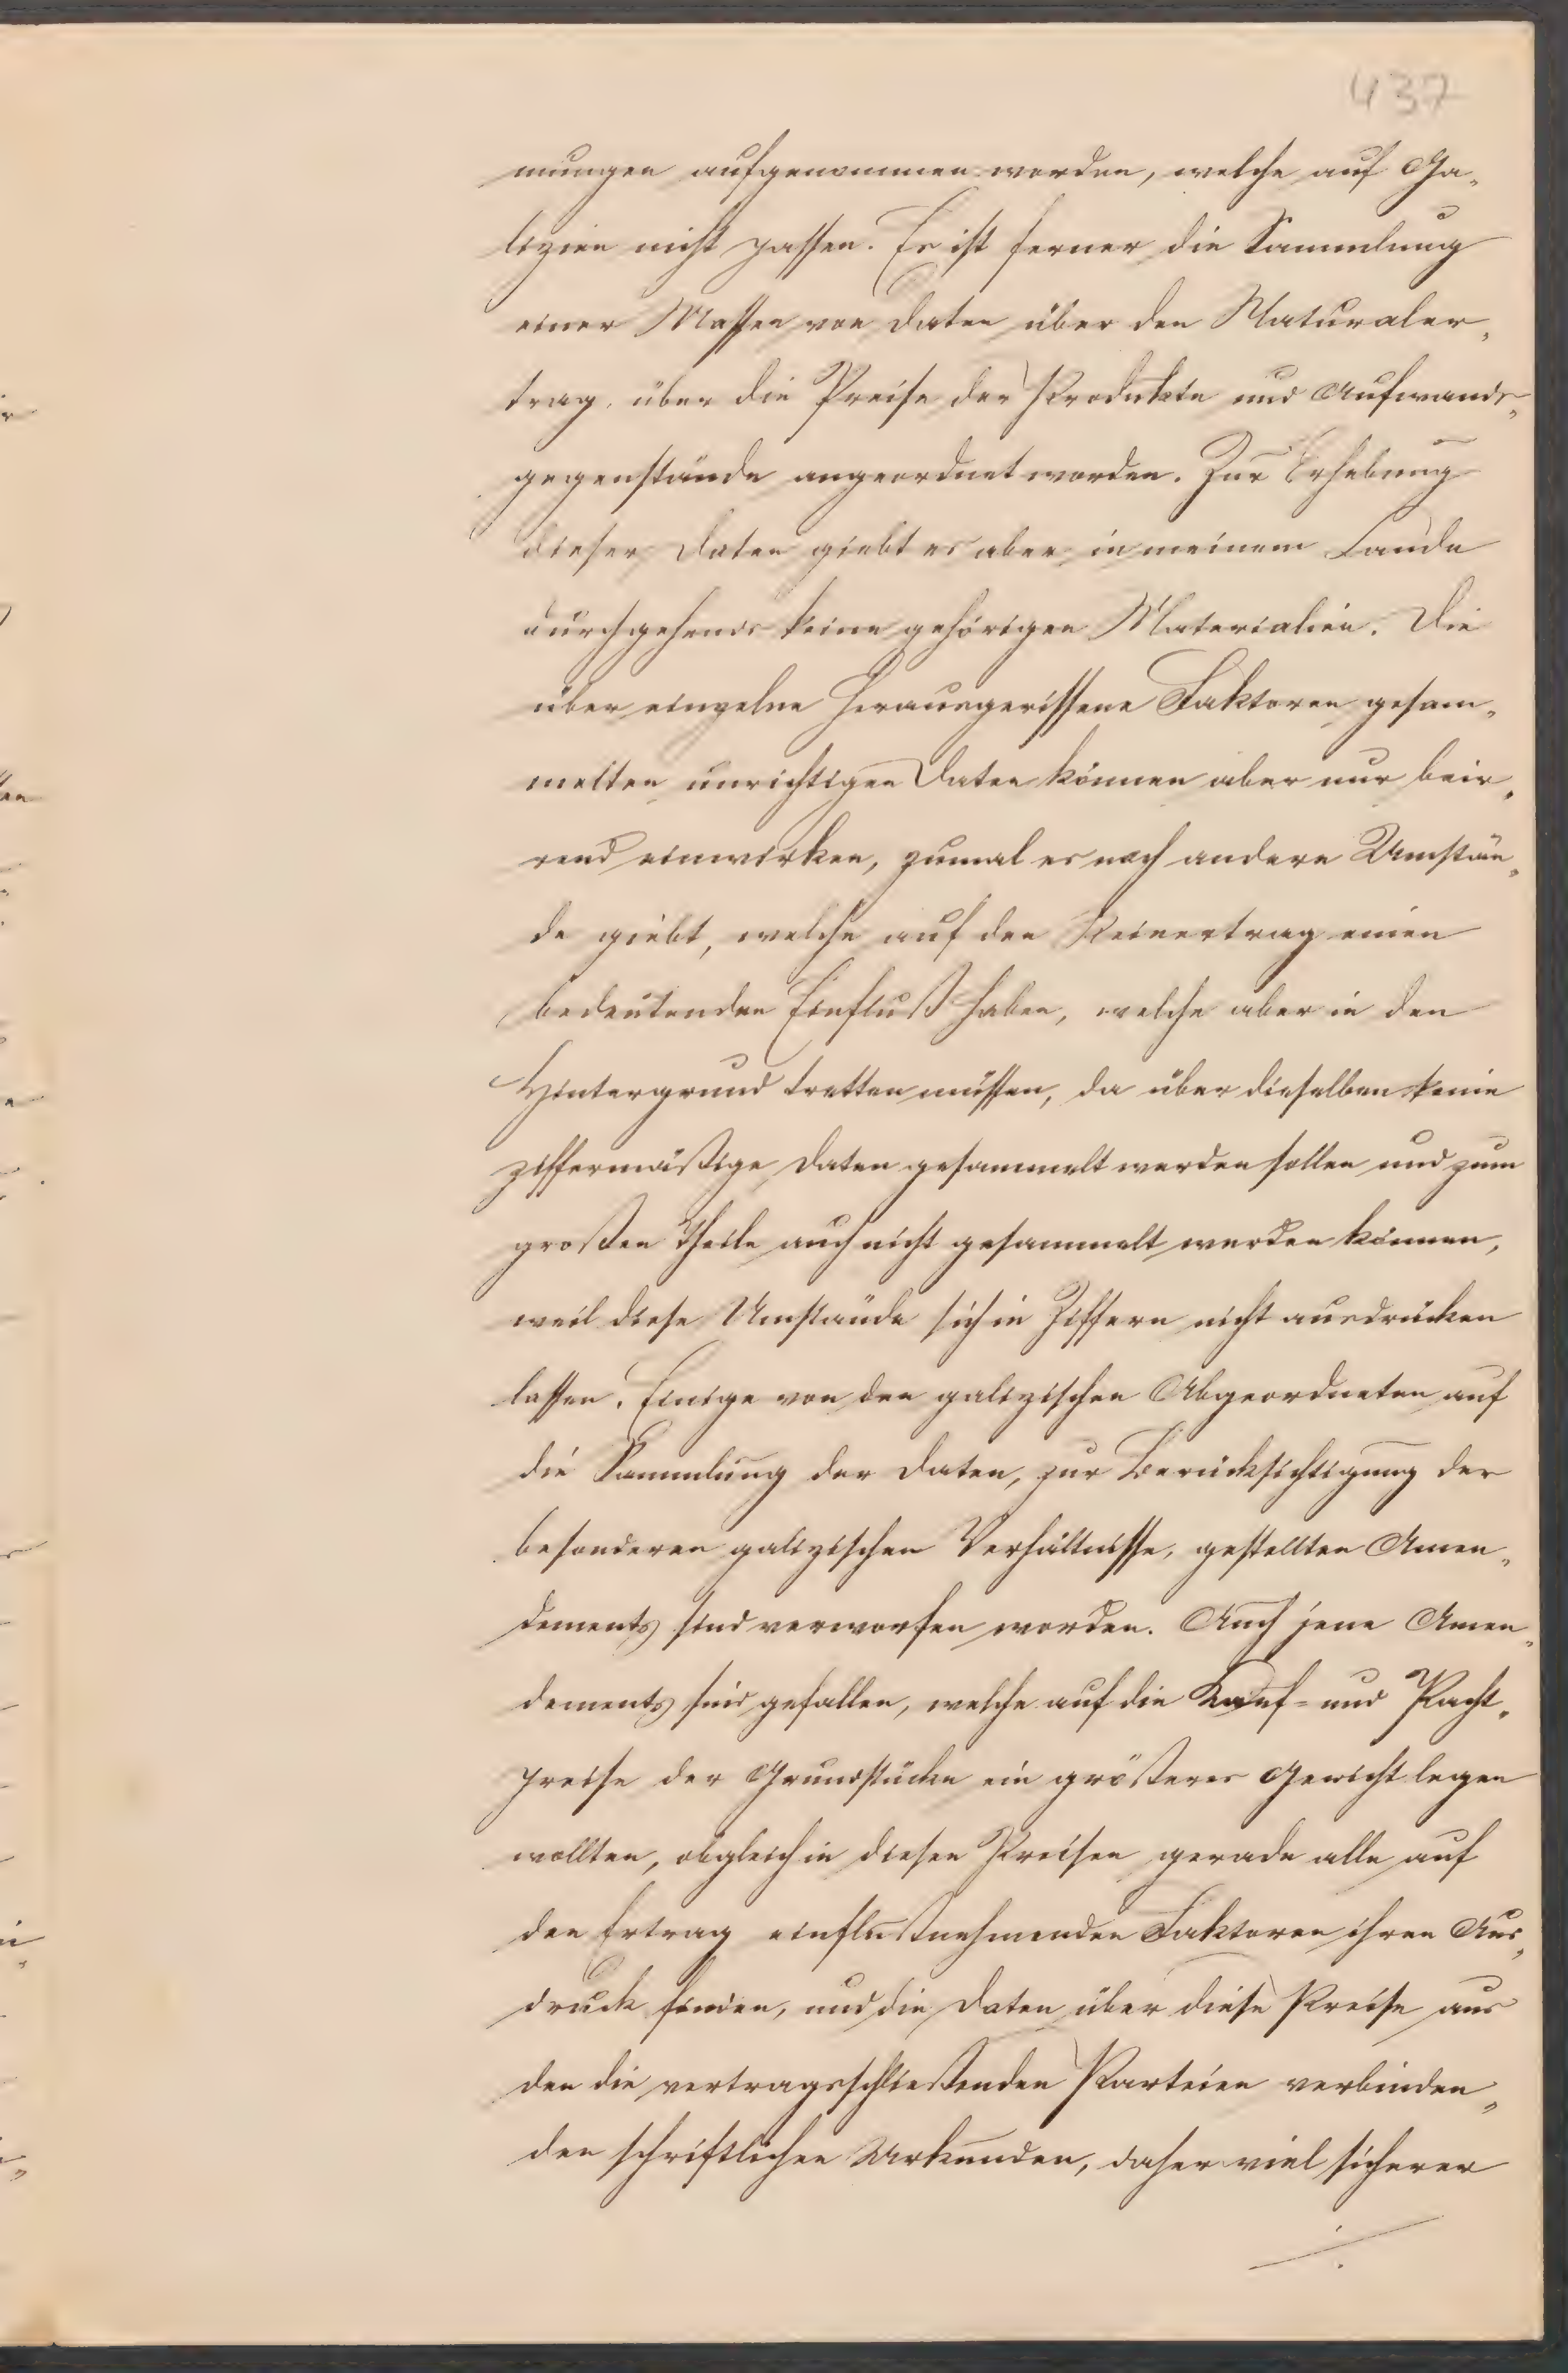 437
mungen aufgenommen worden, welche auf Ga„
lizien nicht passen. Es ist ferner die Sammlung
einer Massen von Daten über den Naturaler„
trag, über die Preise der Produkte und Aufwands„
gegenstände angeordnet worden. Zur Erhebung
dieser Daten giebt es aber in meinem Lande
durchgehends keine gehörigen Materialien. Die
über einzelne herausgerissene Faktoren gesam„
melten unrichtigen Daten können aber nur beir„
rend einwirken, zumal es noch andere Umstän„
de giebt, welche auf den Reinertrag einen
bedeutenden Einfluß haben, welche aber in den
Hintergrund tretten müssen, da über dieselben keine
ziffermäßige Daten gesammelt werden sollen und zum
großen Theile auch nicht gesammelt werden können,
weil diese Umstände sich in Ziffern nicht ausdrücken
lassen. Einige von den galizischen Abgeordneten auf
die Sammlung der Daten, zur Berücksichtigung der
besonderen galizischen Verhältnisse, gestellten Amen„
dements sind verworfen worden. Auch jene Amen„
dements sind gefallen, welche auf die Kauf- und Pacht„
preise der Grundstücke ein größeres Gewicht legen
wollten, obgleich in diesen Preisen gerade alle auf
den Ertrag einflußnehmenden Faktoren ihren Aus„
druck finden, und die Daten über diese Preise aus
den die vertragsschließenden Parteien verbinden„
den schriftlichen Urkunden, daher viel sicherer
./.